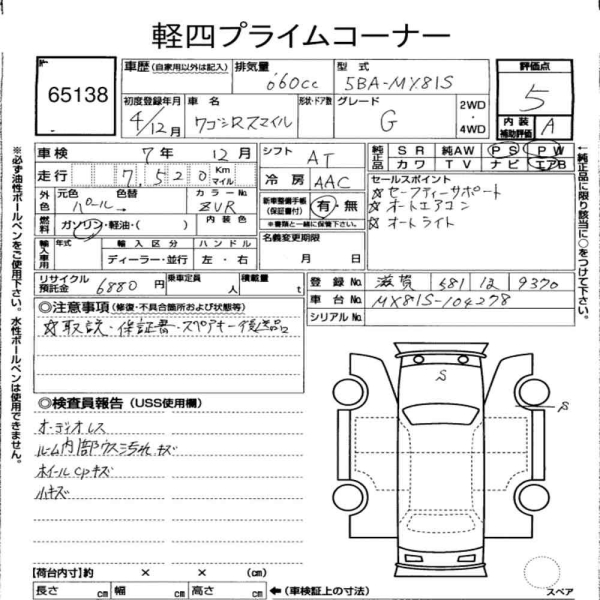 軽四プライムコーナー
65138
車歴 (自家用以外は記入) 排気量 660cc 型式 5BA-MX81S 評価点 5
初度登録年月 4/12月 車名 ワゴンRスマイル 形状・ドア数 グレード G 2WD・4WD 内装補助評価 A
車検 7年 12月 シフト AT 純正品 SR 純AW PS PW
カワ TV ナビ エアB
走行 7,520 Km マイル 冷房 AAC セールスポイント
外色 元色 色替 カラーNo. 新車整備手帳(保証書付) 有・無 ☆セーフティーサポート
パール→ ZVR ※書類と一緒に保管下さい。 ☆オートエアコン
燃料 ガソリン・軽油・( ) 内装色 名義変更期限 ☆オートライト
輸入車用 年式 輸入区分 ハンドル 月 日
ディーラー・並行 左・右
リサイクル預託金 6880円 乗車定員 人 積載量 t 登録No. 滋賀 581 い 9370
車台No. MX81S-104278
シリアルNo.
◎注意事項 (修復・不具合箇所および状態等)
☆取説・保証書・スペアキー後送品
◎検査員報告 (USS使用欄)
オーディオレス
ルーム内部ウス汚れ キズ
ホイールCPキズ
小キズ
S
S
【荷台内寸】約 × × (cm)
長さ cm 幅 cm 高さ cm ←(車検証上の寸法) スペア
※必ず油性ボールペンをご使用下さい。水性ボールペンは使用できません。
←純正品に限り該当に○をつけて下さい。